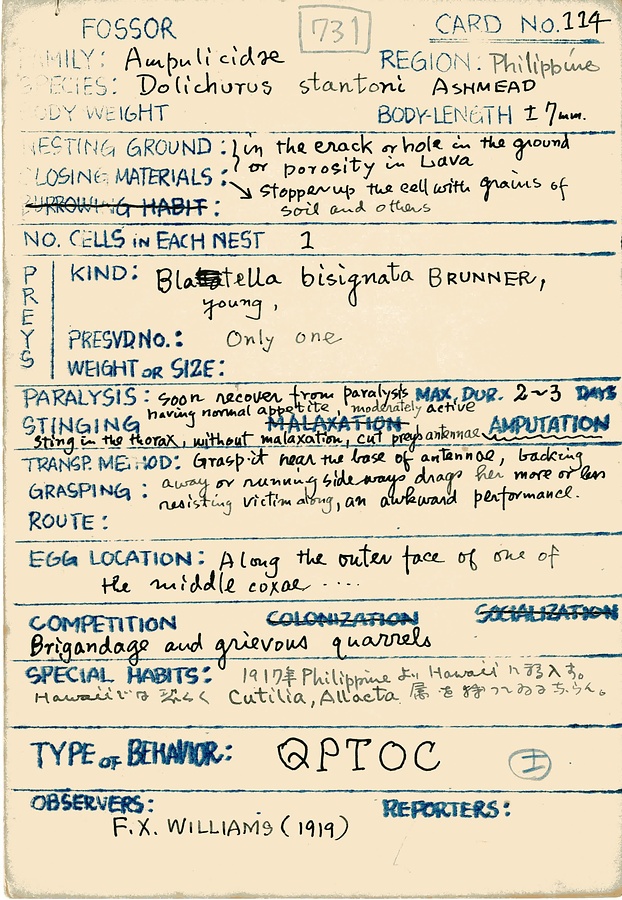 FOSSOR 731 CARD No. 114
FAMILY: Ampulicidae REGION: Philippine
SPECIES: Dolichurus stantoni ASHMEAD
BODY WEIGHT BODY-LENGTH ±7mm.
NESTING GROUND: in the crack or hole in the ground
or porosity in Lava
CLOSING MATERIALS: Stopper up the cell with grains of
BURROWING HABIT: soil and others
NO. CELLS IN EACH NEST 1
PREYS
KIND: Blattella bisignata BRUNNER,
young,
PRESVD NO.: Only one
WEIGHT OR SIZE:
PARALYSIS: soon recover from paralysis MAX. DUR. 2~3 DAYS
having normal appetite, moderately active
STINGING MALAXATION AMPUTATION
sting in the thorax, without malaxation, cut prey's antennae
TRANSP. METHOD: Grasp it near the base of antennae, backing
GRASPING: away or running sideways drags her more or less
resisting victim along, an awkward performance.
ROUTE:
EGG LOCATION: Along the outer face of one of
the middle coxae ....
COMPETITION COLONIZATION SOCIALIZATION
Brigandage and grievous quarrels
SPECIAL HABITS: 1917年 Philippine より Hawaii に移入す。
Hawaiiでは Cutilia, Allacta 属を狩つてゐるらしい。
TYPE OF BEHAVIOR: QPTOC I
OBSERVERS: REPORTERS:
F.X. WILLIAMS (1919)